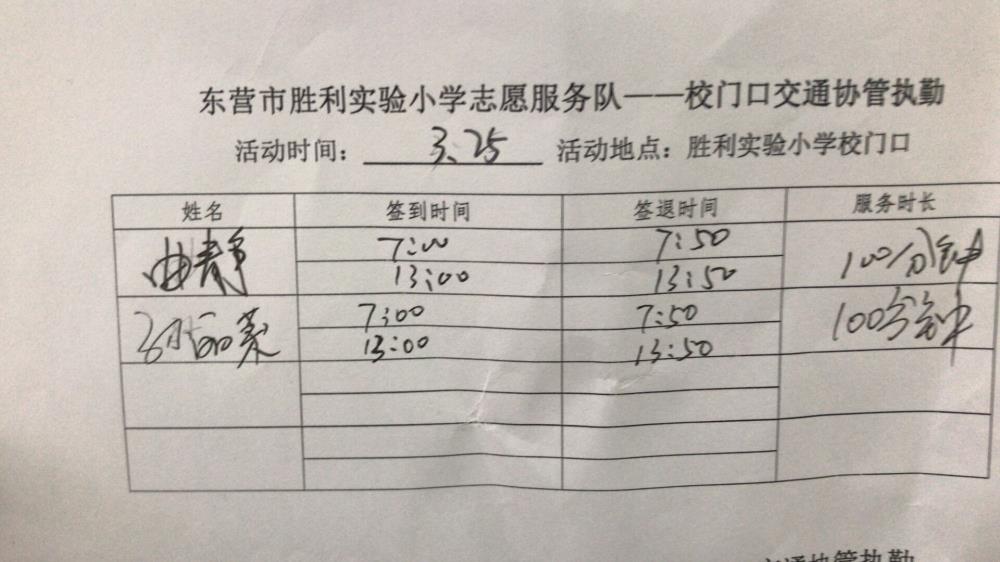 东营市胜利实验小学志愿服务队——校门口交通协管执勤
活动时间：3.25 活动地点：胜利实验小学校门口
姓名 签到时间 签退时间 服务时长
曲静 7:00 7:50 100分钟
13:00 13:50
7:00 7:50 100分钟
13:00 13:50
交通协管执勤